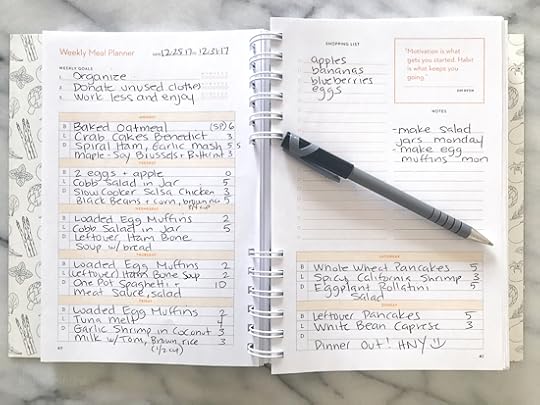 Weekly Meal Planner
DATE 12·25·17 TO 12/31/17
WEEKLY GOALS
1. Organize
2. Donate unused clothes
3. Work less and enjoy
MONDAY
B Baked Oatmeal (SP) 6
L Crab Cakes Benedict 3
D Spiral Ham, Garlic mash 5
maple-Soy Brussels + Butternut 3
TUESDAY
B 2 eggs + apple 0
L Cobb Salad in Jar 5
D Slow Cooker Salsa Chicken 3
Black Beans + corn, brown rice 5
3/4 cup
WEDNESDAY
B Loaded Egg Muffins 2
L Cobb Salad in Jar 5
D Leftover Ham Bone
Soup w/ bread
THURSDAY
B Loaded Egg Muffins 2
L Leftover Ham Bone Soup 2
D One Pot Spaghetti + 10
meat sauce, salad
FRIDAY
B Loaded Egg Muffins 2
L Tuna melt
D Garlic Shrimp in Coconut 3
milk w/Tom, Brown rice 3
(1/2 cup)
40
SHOPPING LIST
apples
bananas
blueberries
eggs
"Motivation is what
gets you started. Habit
is what keeps you
going."
JIM RYUN
NOTES
-make salad
jars monday
-make egg
muffins mon
SATURDAY
B Whole Wheat Pancakes 5
L Spicy California Shrimp 3
D Eggplant Rollatini 5
Salad
SUNDAY
B Leftover Pancakes 5
L White Bean Caprese 3
D Dinner Out! HNY